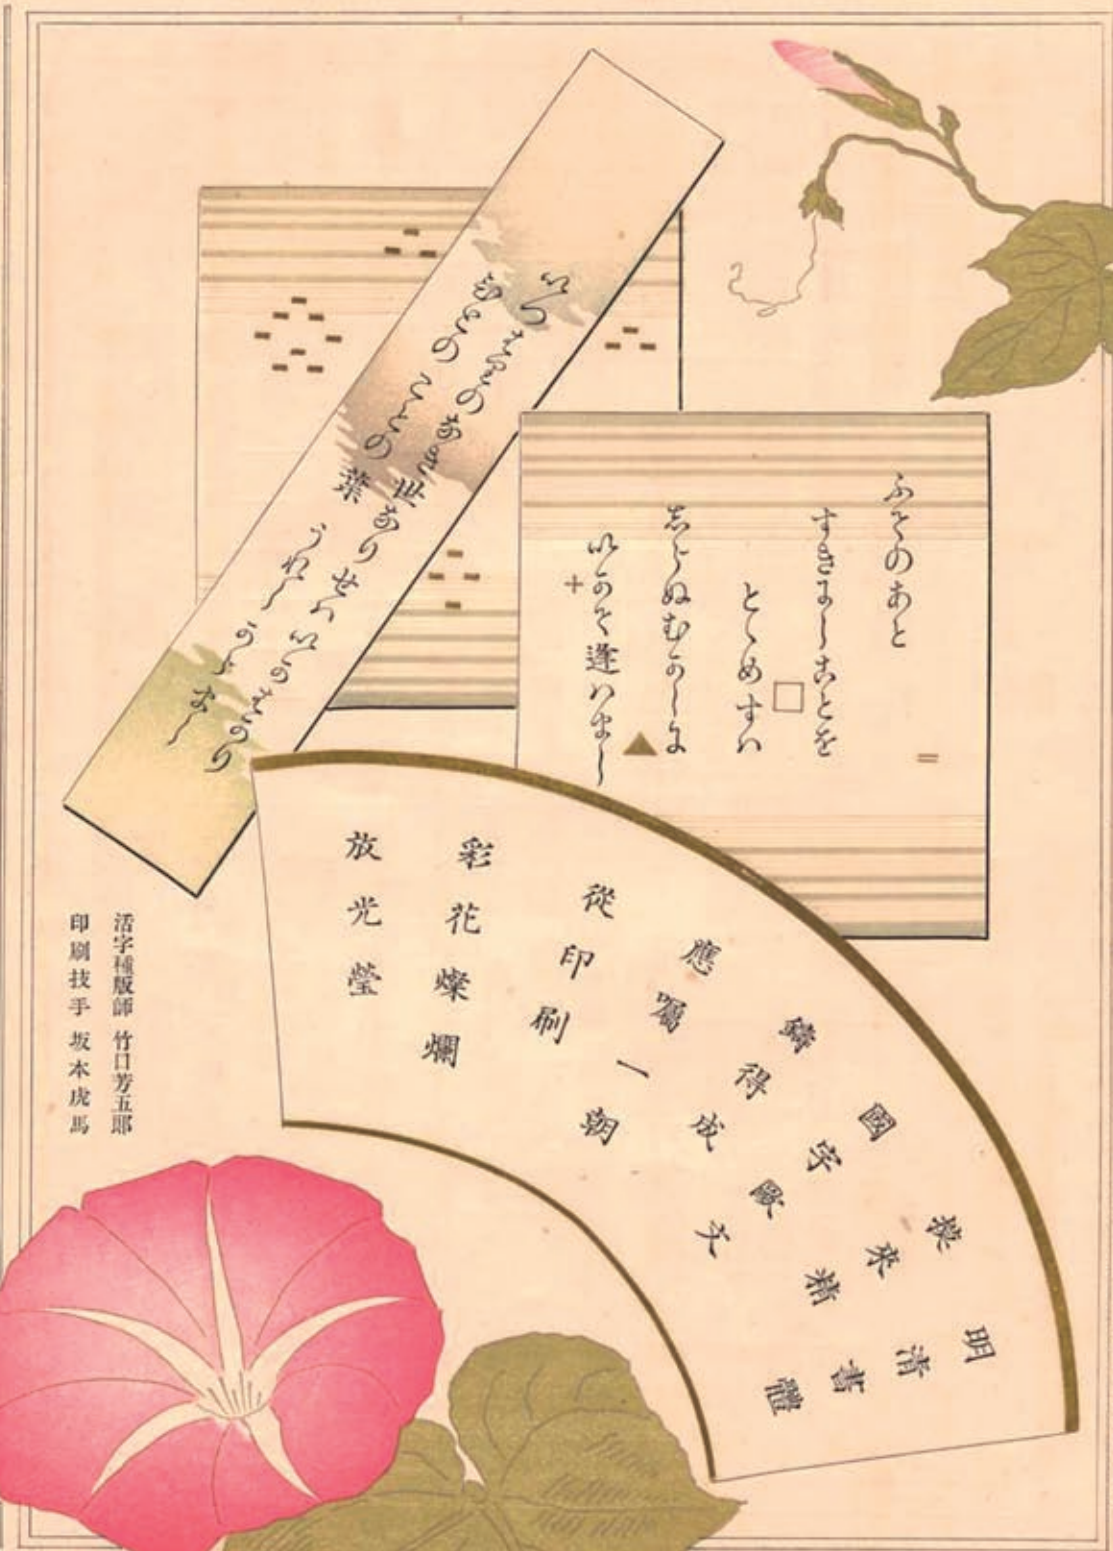 いつはりのなき世なりせはいかはかり
ひとのことの葉うれしからまし
ふてのあと
すきにしことを
とゝめすハ
志らぬむかしに
いかて逢ハまし
明清書體
挾來精
國字厥文
鑄得成
應囑一朝
從印刷
彩花燦爛
放光瑩
活字種版師 竹口芳五郎
印刷技手 坂本虎馬